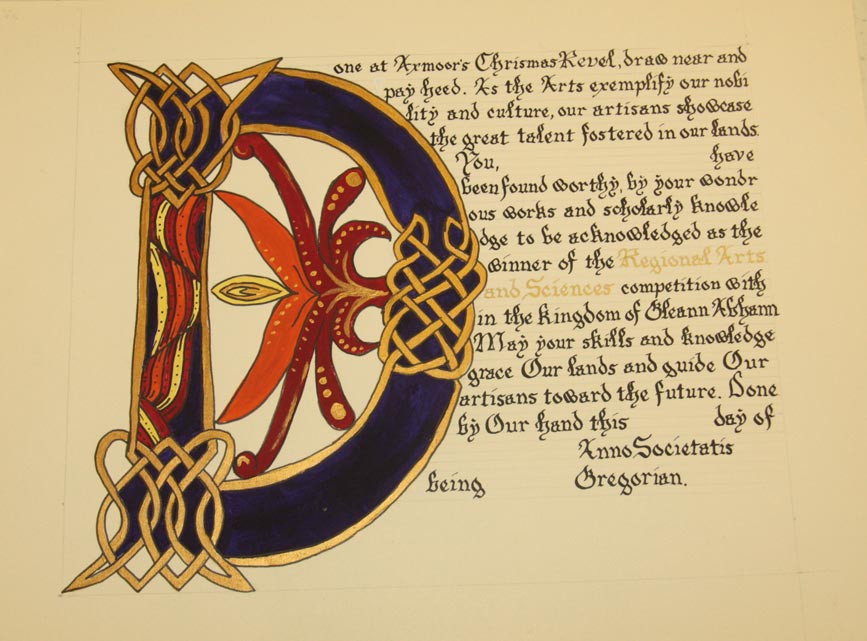 Done at Axmoor's Chrismas Revel, draw near and
pay heed. As the Arts exemplify our nobi
lity and culture, our artisans showcase
the great talent fostered in our lands.
You, have
been found worthy, by your wondr
ous works and scholarly knowle
dge to be acknowledged as the
winner of the Regional Arts
and Sciences competition with
in the kingdom of Gleann Abhann
May your skills and knowledge
grace Our lands and guide Our
artisans toward the future. Done
by Our hand this day of
Anno Societatis
being Gregorian.